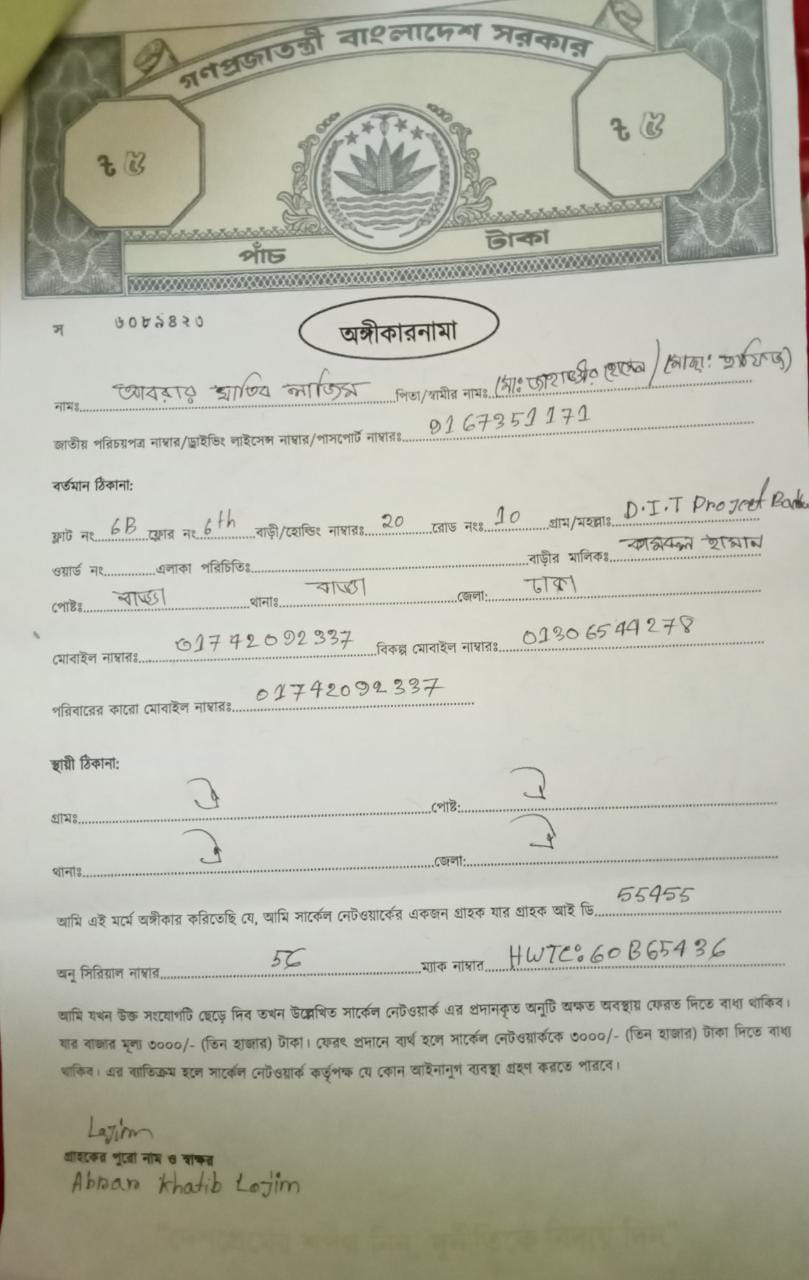 গণপ্রজাতন্ত্রী বাংলাদেশ সরকার
৳ ৫ ৳ ৫
পাঁচ টাকা
অঙ্গীকারনামা
নামঃ আবরার খাতিব লাজিম পিতা/স্বামীর নামঃ (মোঃ জাহাঙ্গীর হোসেন)
জাতীয় পরিচয়পত্র নাম্বার/ড্রাইভিং লাইসেন্স নাম্বার/পাসপোর্ট নাম্বারঃ 9167351171
বর্তমান ঠিকানা:
ফ্লাট নং 6B ফ্লোর নং 6th বাড়ী/হোল্ডিং নাম্বারঃ 20 রোড নংঃ 10 গ্রাম/মহল্লাঃ D.I.T Project
ওয়ার্ড নং এলাকা পরিচিতিঃ বাড়ীর মালিকঃ কামরুল হাসান
পোষ্টঃ বাড্ডা থানাঃ বাড্ডা জেলা: ঢাকা
মোবাইল নাম্বারঃ 01742092337 বিকল্প মোবাইল নাম্বারঃ 01306544278
পরিবারের কারো মোবাইল নাম্বারঃ 01742092337
স্থায়ী ঠিকানা:
গ্রামঃ ঐ পোষ্ট: ঐ
থানাঃ ঐ জেলা: ঐ
আমি এই মর্মে অঙ্গীকার করিতেছি যে, আমি সার্কেল নেটওয়ার্কের একজন গ্রাহক যার গ্রাহক আই ডি 55455
অনু সিরিয়াল নাম্বার 56 ম্যাক নাম্বার HWTC: 60B65436
আমি যখন উক্ত সংযোগটি ছেড়ে দিব তখন উল্লেখিত সার্কেল নেটওয়ার্ক এর প্রদানকৃত অনুটি অক্ষত অবস্থায় ফেরত দিতে বাধ্য থাকিব।
যার বাজার মূল্য ৩০০০/- (তিন হাজার) টাকা। ফেরৎ প্রদানে ব্যর্থ হলে সার্কেল নেটওয়ার্ককে ৩০০০/- (তিন হাজার) টাকা দিতে বাধ্য
থাকিব। এর ব্যতিক্রম হলে সার্কেল নেটওয়ার্ক কর্তৃপক্ষ যে কোন আইনানুগ ব্যবস্থা গ্রহণ করতে পারবে।
Lajim
গ্রাহকের পুরো নাম ও স্বাক্ষর
Abrar Khatib Lajim